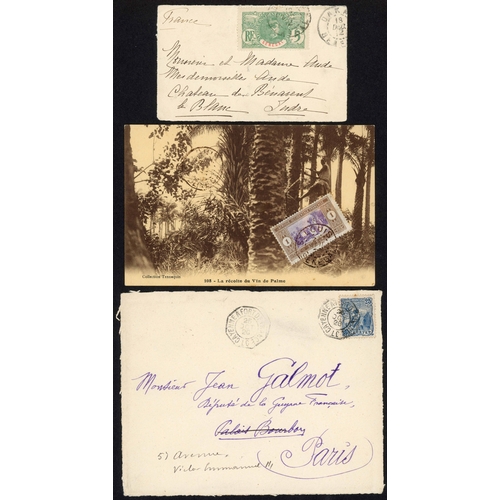 France
RF 5
Monsieur et Madame Aude
Mesdemoiselles Aude
Chateau de Bénavent
Le Blanc Indre
1
Collection Tennequin
108 - La récolte du Vin de Palme
CAYENNE
25
CAYENNE
Monsieur Jean Galmot,
Député de la Guyane Française,
Palais Bourbon
Paris
51 Avenue
Victor Emmanuel III